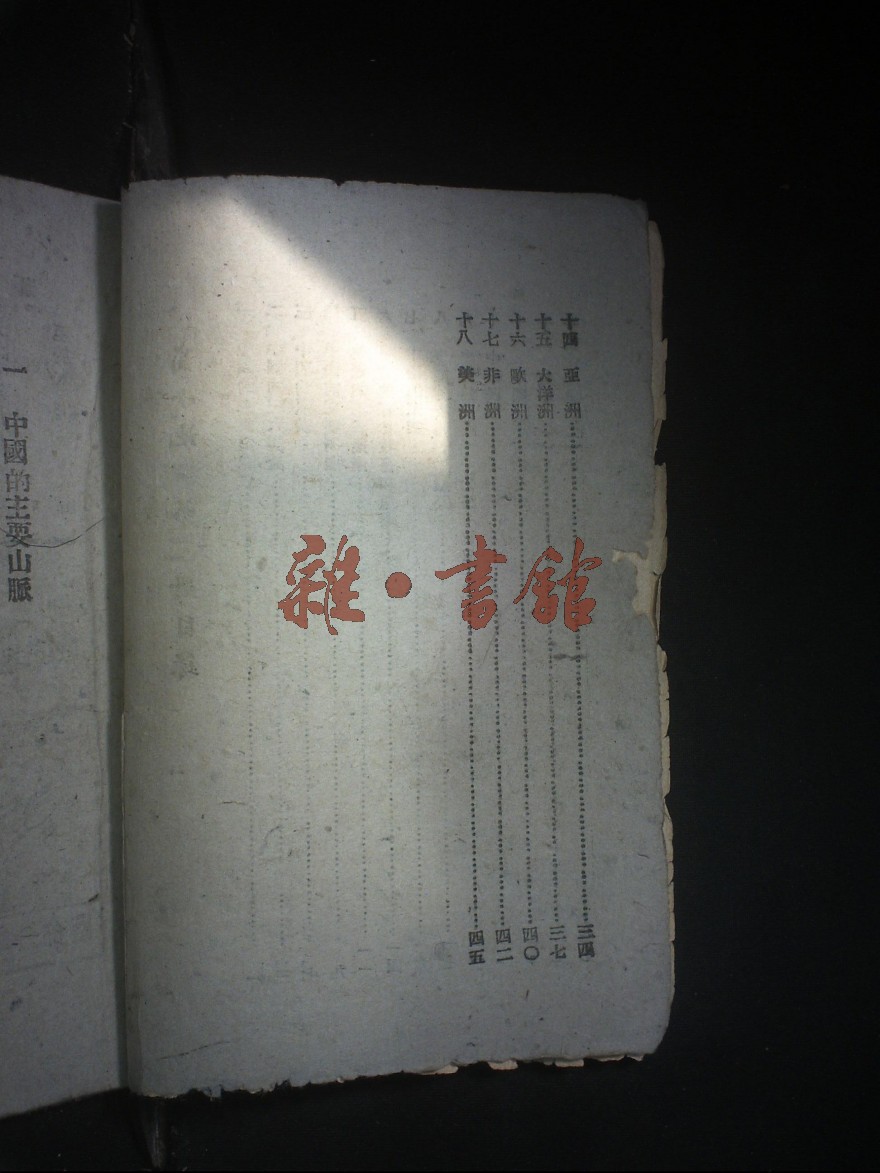 十四 亞洲……三四
十五 大洋洲……三七
十六 歐洲……四〇
十七 非洲……四二
十八 美洲……四五
一 中國的主要山脈
雜·書館